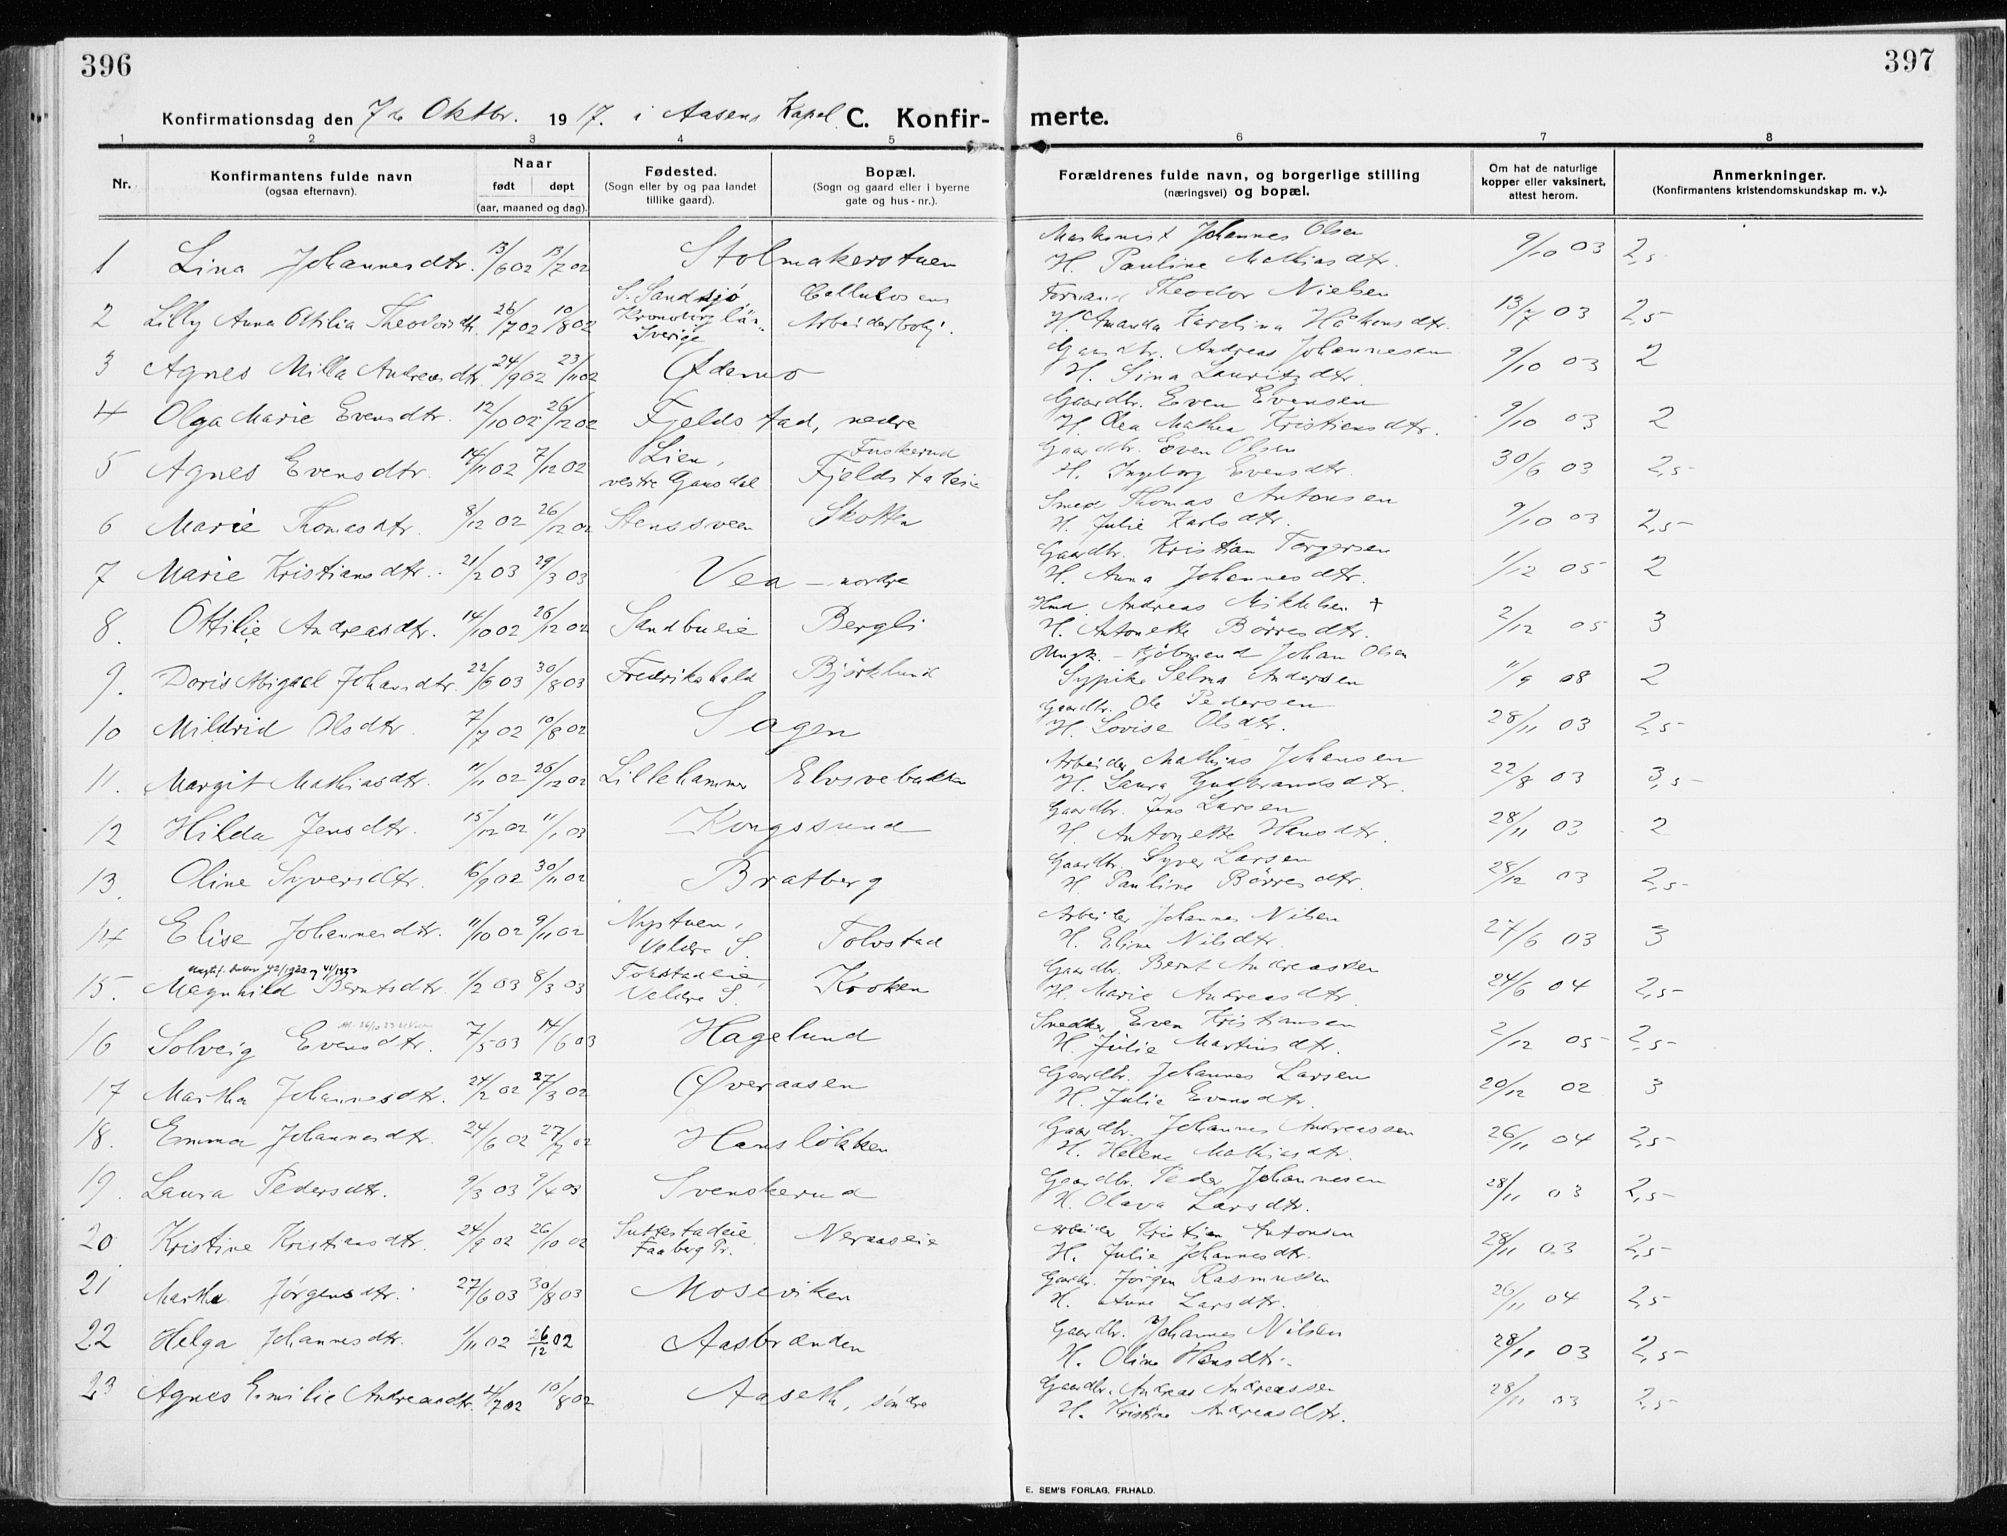 396
397
Konfirmationsdag den 7de Oktbr. 1917. i Aasens Kapel. C. Konfir- merte.
1 2 3 4 5 6 7 8
Nr. Konfirmantens fulde navn (ogsaa efternavn). Naar født døpt (aar, maaned og dag). Fødested. (Sogn eller by og paa landet tillike gaard). Bopæl. (Sogn og gaard eller i byerne gate og hus-nr.). Forældrenes fulde navn, og borgerlige stilling (næringsvei) og bopæl. Om hat de naturlige kopper eller vaksinert, attest herom. Anmerkninger. (Konfirmantens kristendomskundskap m. v.).
1 Lina Johannesdtr. 13/6 02 13/7 02 Stolmakerstuen Maskinist Johannes Olsen 9/10 03 2,5
H. Pauline Mathiasdtr.
2 Lilly Anna Ottilia Theodorsdtr. 26/7 02 10/8 02 S. Sandsjö, Kronoberg län, Sverige Cellulosens Arbeiderbolig. Formand Theodor Nielsen 13/7 03 2,5
H. Amanda Karolina Håkonsdtr.
3 Agnes Milla Andreasdtr. 24/9 02 23/11 02 Ødemo Gaardbr. Andreas Johannesen 9/10 03 2
H. Sina Lauritzdtr.
4 Olga Marie Evensdtr. 12/10 02 26/12 02 Fjeldstad, nedre Gaardbr. Even Evensen 9/10 03 2
H. Olea Mathea Kristiansdtr.
5 Agnes Evensdtr. 14/11 02 7/12 02 Lien, vestre Gausdal Fuskerud Fjeldstadeie Gaardbr. Even Olsen 30/6 03 2,5
H. Ingeborg Evensdtr.
6 Marie Thomasdtr. 8/12 02 26/12 02 Stenssveen Skotten Smed Thomas Antonsen 9/10 03 2,5
H. Julie Karlsdtr.
7 Marie Kristiansdtr. 21/2 03 29/3 03 Vea - nordre Gaardbr. Kristian Torgersen 1/12 05 2
H. Anna Johannesdtr.
8. Ottilie Andreasdtr. 14/10 02 26/12 02 Sandbueie Bergli Hmd. Andreas Mikkelsen + 2/12 05 3
H. Antonette Börresdtr.
9. Doris Abigael Johansdtr. 22/6 03 30/8 03 Fredrikshald Bjørklund Ungk. - Kjöbmand Johan Olsen 11/9 08 2
Sypike Selma Andersen
10 Mildrid Olsdtr. 7/7 02 10/8 02 Sagen Gaardbr. Ole Pedersen 28/11 03 2,5
H. Lovise Olsdtr.
11. Margit Mathiasdtr. 11/11 02 26/12 02 Lillehammer Elvsvebakken Arbeider Mathias Johansen 22/8 03 3,5
H. Laura Gudbrandsdtr.
12 Hilda Jensdtr. 15/12 02 11/1 03 Kongssund Gaardbr. Jens Larsen 28/11 03 2
H. Antonette Hansdtr.
13. Oline Syversdtr. 16/9 02 30/11 02 Bratberg Gaardbr. Syver Larsen 28/12 03 2,5
H. Pauline Börresdtr.
14 Elise Johannesdtr. 11/10 02 9/11 02 Nystuen, Veldre S. Tolvstad Arbeider Johannes Nilsen 27/6 03 3
H. Eline Nilsdtr.
15. Magnhild Berntsdtr. 1/2 03 8/3 03 Tokstadeie, Veldre S. Kroken Gaardbr. Bernt Andreassen 24/6 04 2,5
H. Marie Andreasdtr.
16 Solveig Evensdtr. 7/5 03 14/6 03 Hagelund Snedker Even Kristiansen 2/12 05 2,5
H. Julie Martinsdtr.
17 Martha Johannesdtr. 24/2 02 27/3 02 Øveraasen Gaardbr. Johannes Larsen 20/12 02 3
H. Julie Evensdtr.
18. Emma Johannesdtr. 24/6 02 27/7 02 Hanslökken Gaardbr. Johannes Andreassen 26/11 04 2,5
H. Helene Mathiasdtr.
19. Laura Pedersdtr. 9/3 03 9/4 03 Svenskerud Gaardbr. Peder Johannesen 28/11 03 2,5
H. Olava Larsdtr.
20 Kristine Kristiansdtr. 24/9 02 26/10 02 Suttestadeie, Faaberg Pr. Neraaseie Arbeider Kristian Antonsen 28/11 03 2,5
H. Julie Johannesdtr.
21 Martha Jørgensdtr. 27/6 03 30/8 03 Moseviken Gaardbr. Jörgen Rasmussen 26/11 04 2,5
H. Anne Larsdtr.
22 Helga Johannesdtr. 1/11 02 26/12 02 Aasbrænden Gaardbr. Johannes Nilsen 28/11 03 2,5
H. Oline Hansdtr.
23 Agnes Emilie Andreasdtr. 4/7 02 10/8 02 Aaseth, søndre Gaardbr. Andreas Andreassen 28/11 03 2,5
H. Kristine Andreasdtr.
E. SEM'S FORLAG. FR.HALD.